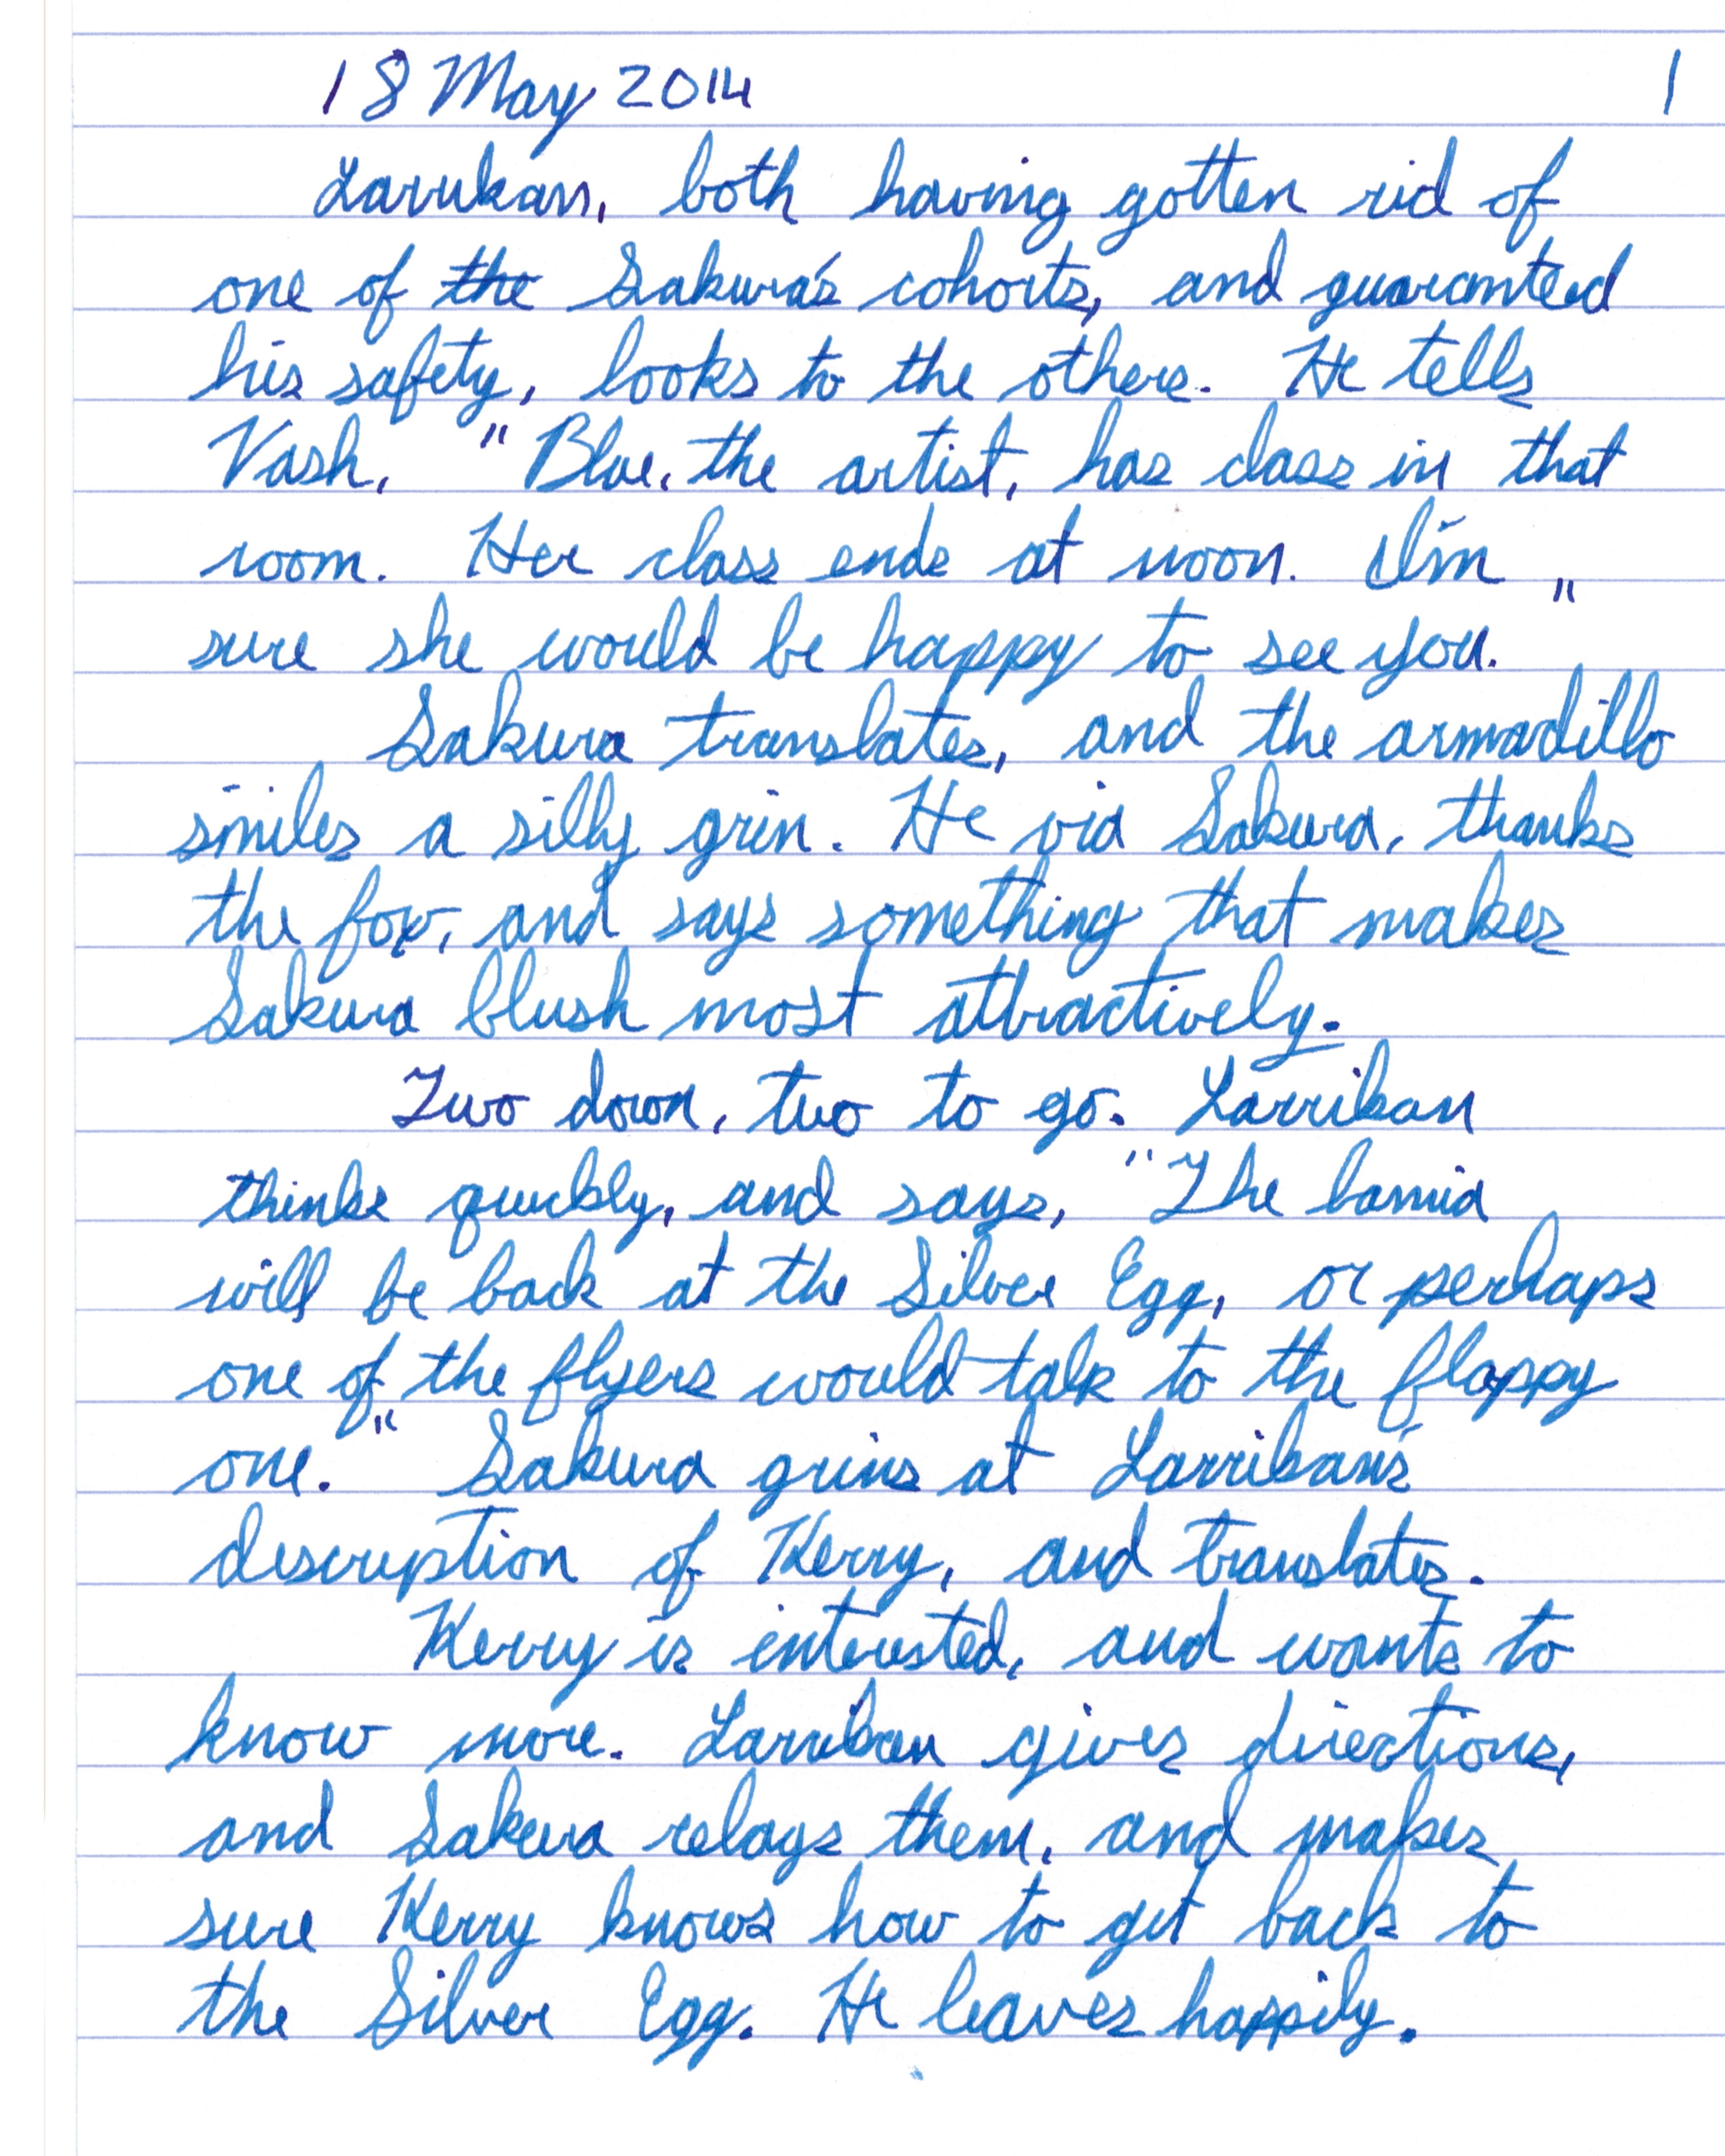 18 May 2014 1
Larrikan, both having gotten rid of
one of the Sakura's cohorts, and guaranteed
his safety, looks to the others. He tells
Vash, "Blue, the artist, has class in that
room. Her class ends at noon. I'm
sure she would be happy to see you."
Sakura translates, and the armadillo
smiles a silly grin. He via Sakura, thanks
the fox, and says something that makes
Sakura blush most attractively.
Two down, two to go. Larrikan
thinks quickly, and says, "The lamia
will be back at the Silver Egg, or perhaps
one of the flyers would talk to the floppy
one." Sakura grins at Larrikan's
description of Kerry, and translates.
Kerry is interested, and wants to
know more. Larrikan gives directions,
and Sakura relays them, and makes
sure Kerry knows how to get back to
the Silver Egg. He leaves happily.